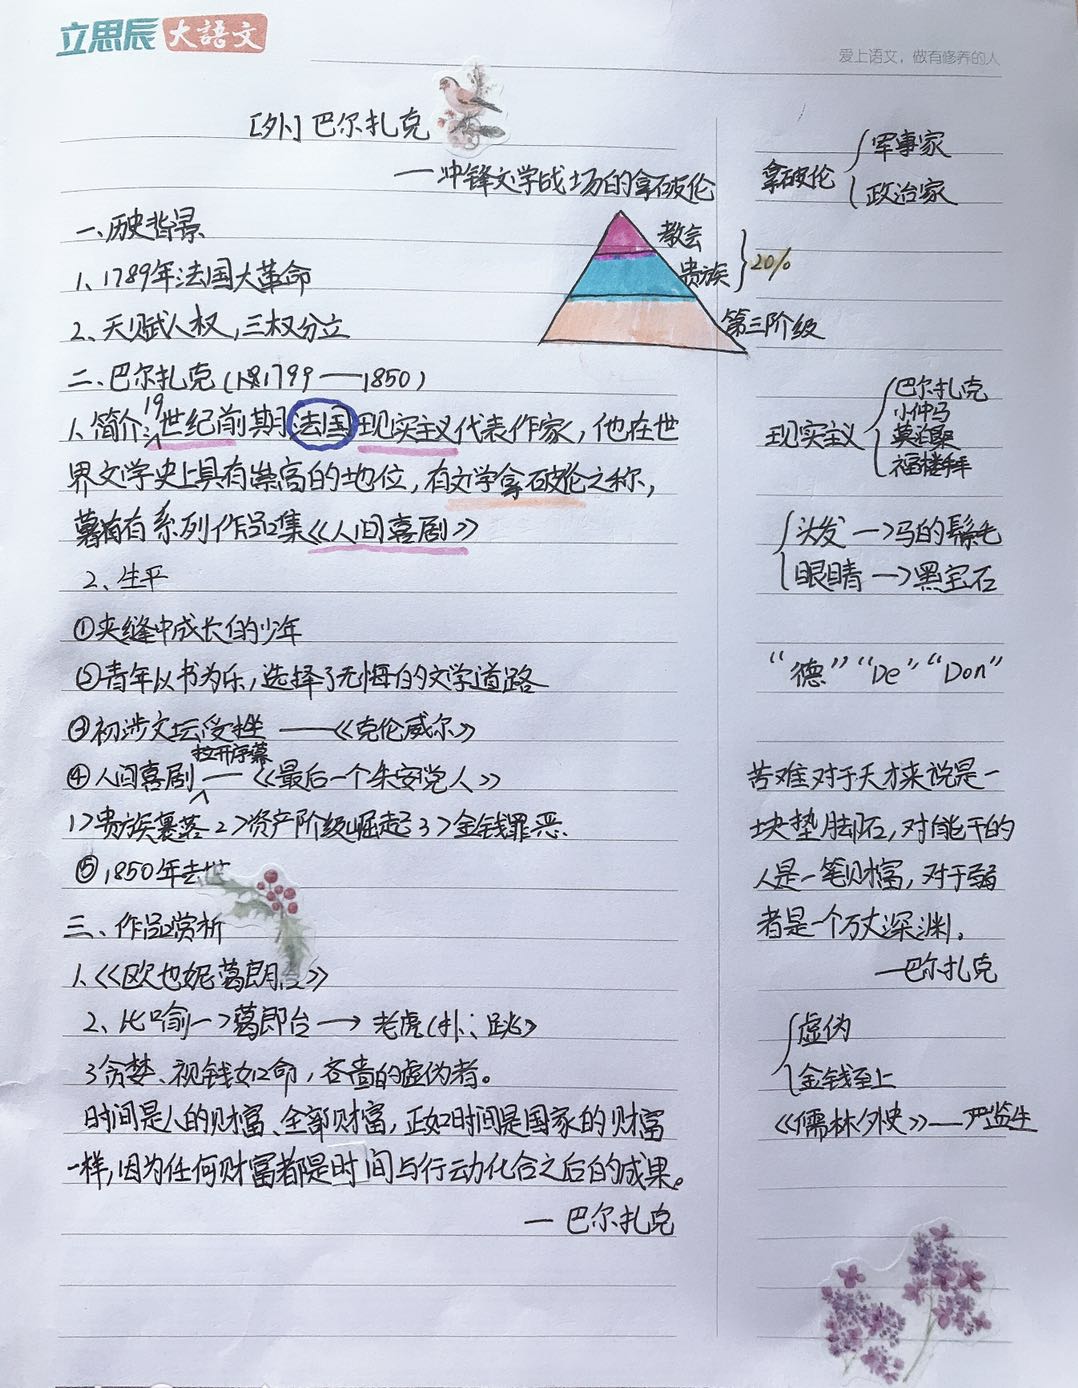 立思辰 大語文
爱上语文，做有修养的人
[外] 巴尔扎克
—冲锋文学战场的拿破伦
一、历史背景
1、1789年法国大革命
2、天赋人权，三权分立
教会
贵族
20%
第三阶级
二、巴尔扎克（1799——1850）
1、简介：19世纪前期法国现实主义代表作家，他在世
界文学史上具有崇高的地位，有文学拿破伦之称，
著有系列作品集《人间喜剧》
2、生平
①夹缝中成长的少年
②青年以书为乐，选择了无悔的文学道路
③初涉文坛受挫——《克伦威尔》
拉开序幕
④人间喜剧—《最后一个朱安党人》
1>贵族衰落 2>资产阶级崛起 3>金钱罪恶.
⑤1850年去世
三、作品赏析
1、《欧也妮葛朗台》
2、比喻—>葛郎台—>老虎（扑、跳）
3贪婪、视钱如命，吝啬的虚伪者。
时间是人的财富、全部财富，正如时间是国家的财富
一样，因为任何财富都是时间与行动化合之后的成果。
— 巴尔扎克
拿破伦
军事家
政治家
现实主义
巴尔扎克
小仲马
莫泊桑
福楼拜
头发—>马的鬃毛
眼睛—>黑宝石
“德”“De”“Don”
苦难对于天才来说是一
块垫脚石，对能干的
人是一笔财富，对于弱
者是一个万丈深渊。
—巴尔扎克
虚伪
金钱至上
《儒林外史》—严监生